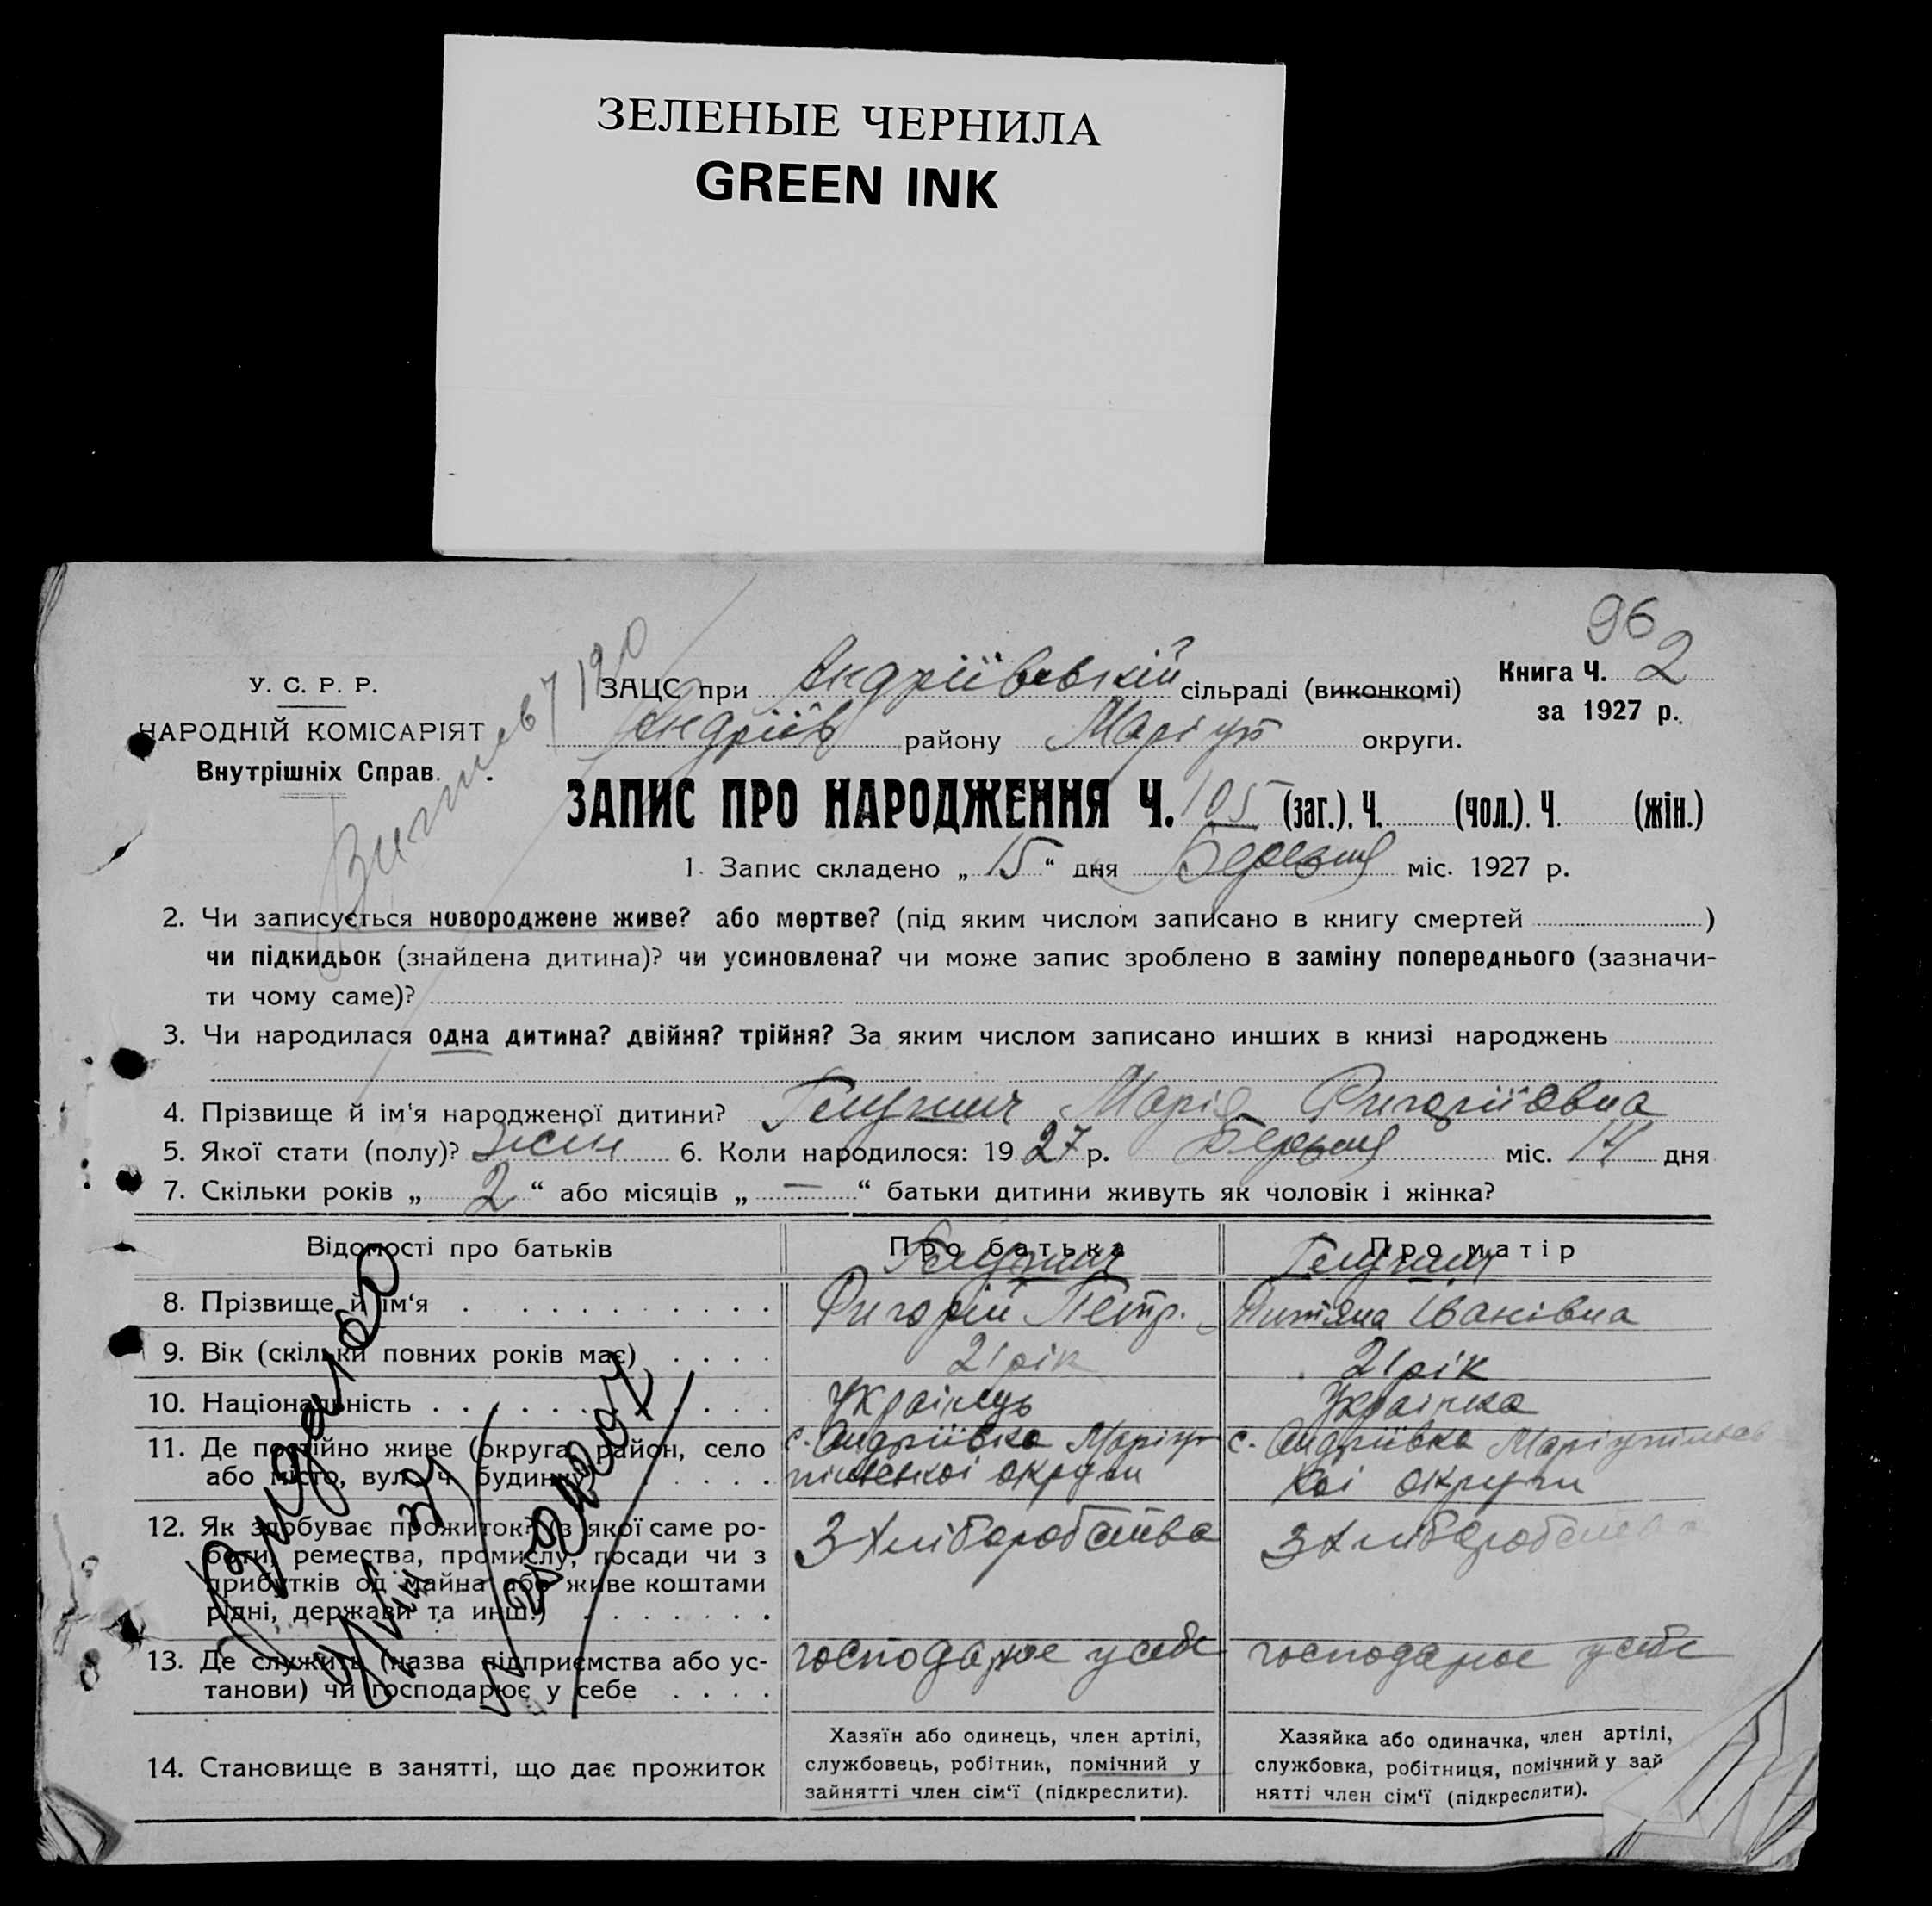 ЗЕЛЕНЫЕ ЧЕРНИЛА
GREEN INK
96
У. С. Р. Р.
НАРОДНІЙ КОМІСАРІЯТ
Внутрішніх Справ.
ЗАЦС при Андріївській сільраді (виконкомі)
Книга Ч. 2
за 1927 р.
Андріїв району Маріуп округи.
ЗАПИС ПРО НАРОДЖЕННЯ Ч. 105 (заг.). Ч. (чол.). Ч. (жін.)
1. Запис складено „ 15 “ дня Березня міс. 1927 р.
2. Чи записується новороджене живе? або мертве? (під яким числом записано в книгу смертей )
чи підкидьок (знайдена дитина)? чи усиновлена? чи може запис зроблено в заміну попереднього (зазначи-
ти чому саме)?
3. Чи народилася одна дитина? двійня? трійня? За яким числом записано инших в книзі народжень
4. Прізвище й ім'я народженої дитини? Марія Григоріївна
5. Якої стати (полу)? жін 6. Коли народилося: 19 27 р. Березня міс. 14 дня
7. Скільки років „ 2 “ або місяців „ — “ батьки дитини живуть як чоловік і жінка?
Відомості про батьків
Про батька
Про матір
8. Прізвище й ім'я
Григорій Петр.
Іванівна
9. Вік (скільки повних років має)
21 рік
21 рік
10. Національність
Українець
Українка
11. Де постійно живе (округа, район, село
або місто, вул., ч. будинку)
с. Андріївка Маріу-
пільської округи
с. Андріївка Маріупільсь
кої округи
12. Як здобуває прожиток? (з якої саме ро-
боти, ремества, промислу, посади чи з
прибутків од майна або живе коштами
рідні, держави та инш.)
З Хліборобства
З Хліборобства
13. Де служить (назва підприємства або ус-
танови) чи господарює у себе
господарює у себе
господарює у себе
14. Становище в занятті, що дає прожиток
Хазяїн або одинець, член артілі,
службовець, робітник, помічний у
зайнятті член сім'ї (підкреслити).
Хазяйка або одиначка, член артілі,
службовка, робітниця, помічний у зай
нятті член сім'ї (підкреслити).